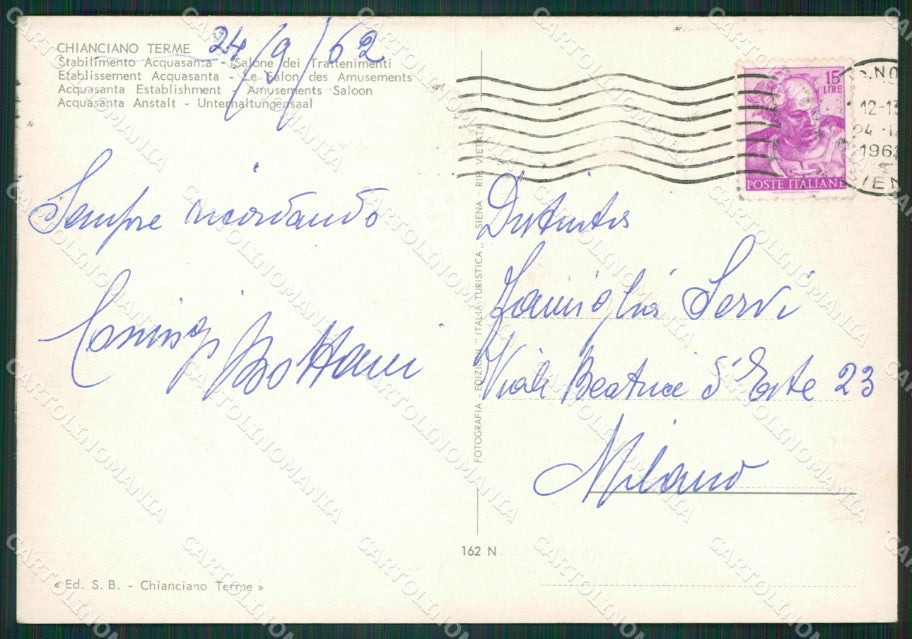 CHIANCIANO TERME 24/9/62
Stabilimento Acquasanta - Salone dei Trattenimenti
Etablissement Acquasanta - Le Salon des Amusements
Acquasanta Establishment - Amusements Saloon
Acquasanta Anstalt - Unterhaltungensaal
15
LIRE
POSTE ITALIANE
12-1
24
196
Sempre ricordando
Bottani
Famiglia Servi
Viale Beatrice d'Este 23
Milano
FOTOGRAFIA EDIZIONI "ITALIA TURISTICA" SIENA RIP. VIETATA
162 N
«Ed. S. B. - Chianciano Terme»
CARTOLINOMANIA